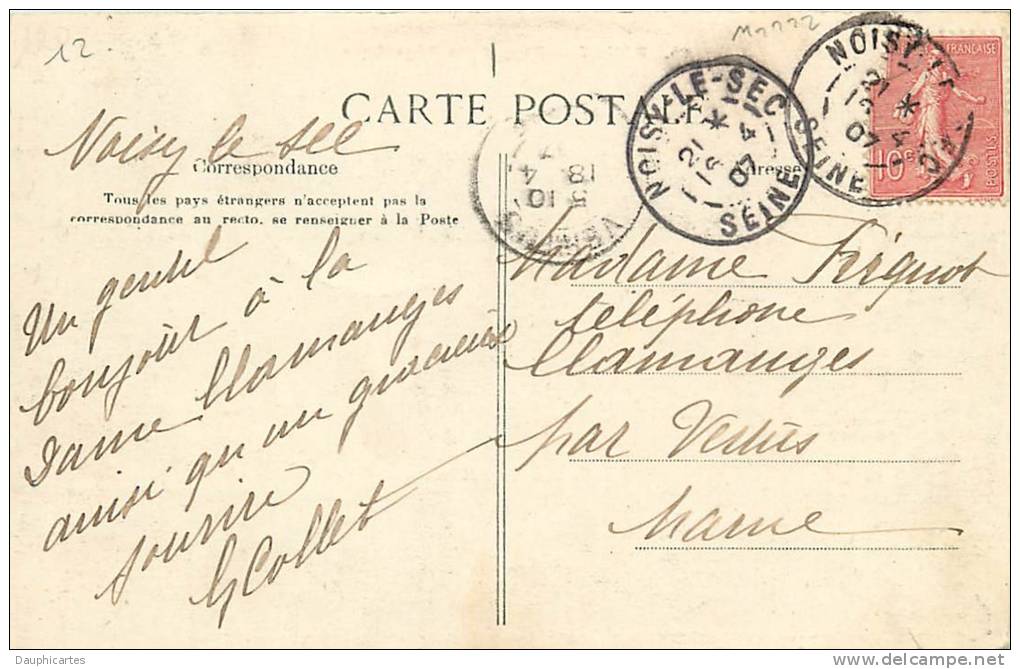 12.
CARTE POSTALE
Noisy le sec
Correspondance
Tous les pays étrangers n'acceptent pas la
correspondance au recto. se renseigner à la Poste
Un gentil
bonjour à la
Dame Clamanges
ainsi qu'un gracieux
sourire
G Collet
NOISY-LE-SEC
21 *
12 4
07
SEINE
NOISY-LE-SEC
21 *
12 4
07
SEINE
18 4
10
FRANÇAISE
10c
POSTES
Adresse
Madame Frignot
téléphone
Clamanges
par Vertus
Marne
Dauphicartes
www.delcampe.net